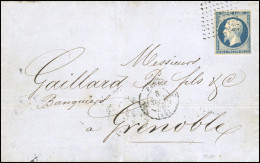 Messieurs
Gaillard P. & fils & C
Banquiers
à Grenoble